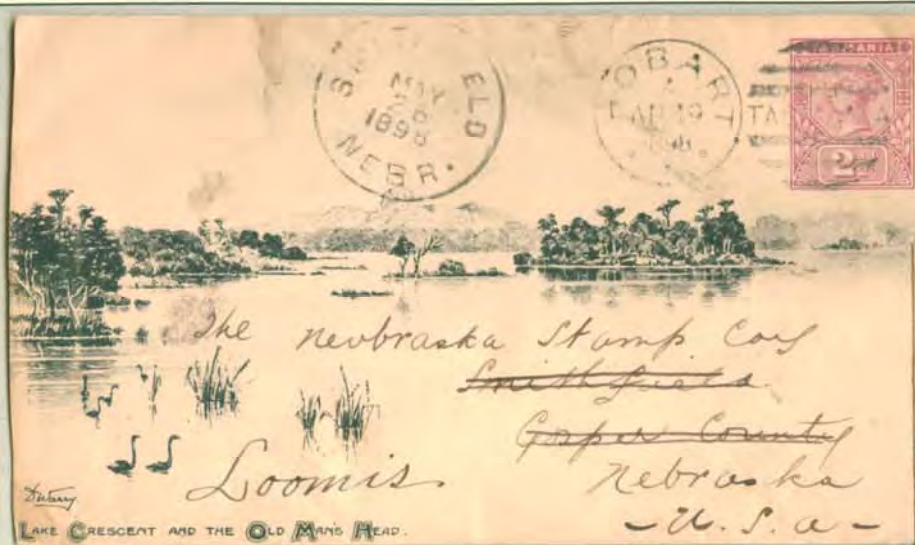 SMITHFIELD
MAY
26
1898
NEBR.
HOBART
AP 19
TASMANIA
TASMANIA
2d
The Neobraska Stamp Coy
Smithfield
Gosper County
Loomis
Nebraska
- U. S. A -
LAKE CRESCENT AND THE OLD MAN'S HEAD.